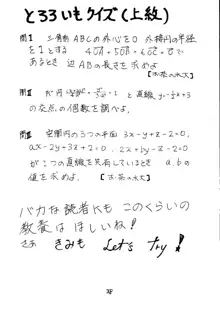 とろろいもクイズ(上級)
問1 三角形ABCの外心をO 外接円の半径
を1とする 4OA+5OB+6OC=0 で
あるとき 辺ABの長さを求めよ
[お茶の水大]
の交点の個数を調べよ.
問Ⅲ 空間内の3つの平面 3x-y+z-2=0,
ax-2y+3z+2=0, 2x+by-z-3=0
が1つの直線を共有しているとき a.bの
値を求めよ. [お茶の水大]
バカな読者Kも このくらいの
教養は ほしいね!
さあ きみも Let's try!